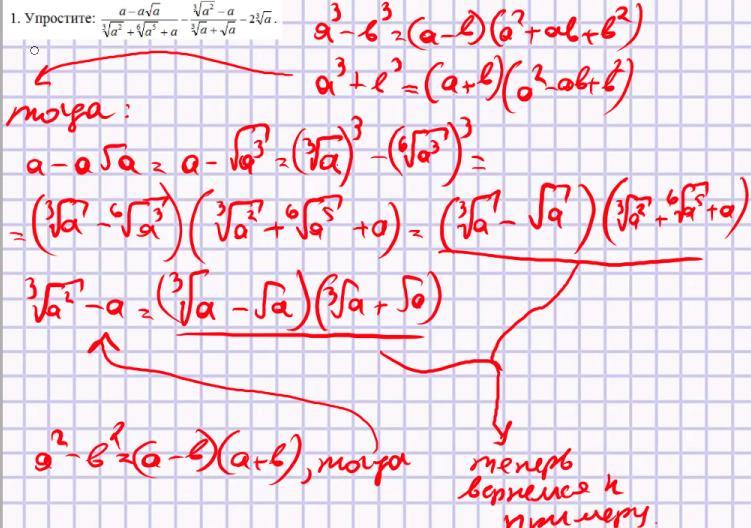 1. Упростите: \frac{a-a\sqrt{a}}{\sqrt[3]{a^2}+\sqrt[6]{a^5}+a} - \frac{\sqrt[3]{a^2}-a}{\sqrt[3]{a}+\sqrt{a}} - 2\sqrt[3]{a}.
a^3 - b^3 = (a-b)(a^2+ab+b^2)
a^3 + b^3 = (a+b)(a^2-ab+b^2)
тогда:
a - a\sqrt{a} = a - \sqrt{a^3} = (\sqrt[3]{a})^3 - (\sqrt[6]{a^3})^3 =
= (\sqrt[3]{a} - \sqrt[6]{a^3})(\sqrt[3]{a^2} + \sqrt[6]{a^5} + a) = (\sqrt[3]{a} - \sqrt{a})(\sqrt[3]{a^2} + \sqrt[6]{a^5} + a)
\sqrt[3]{a^2} - a = (\sqrt[3]{a} - \sqrt{a})(\sqrt[3]{a} + \sqrt{a})
a^2 - b^2 = (a-b)(a+b), тогда
теперь
вернемся к
примеру